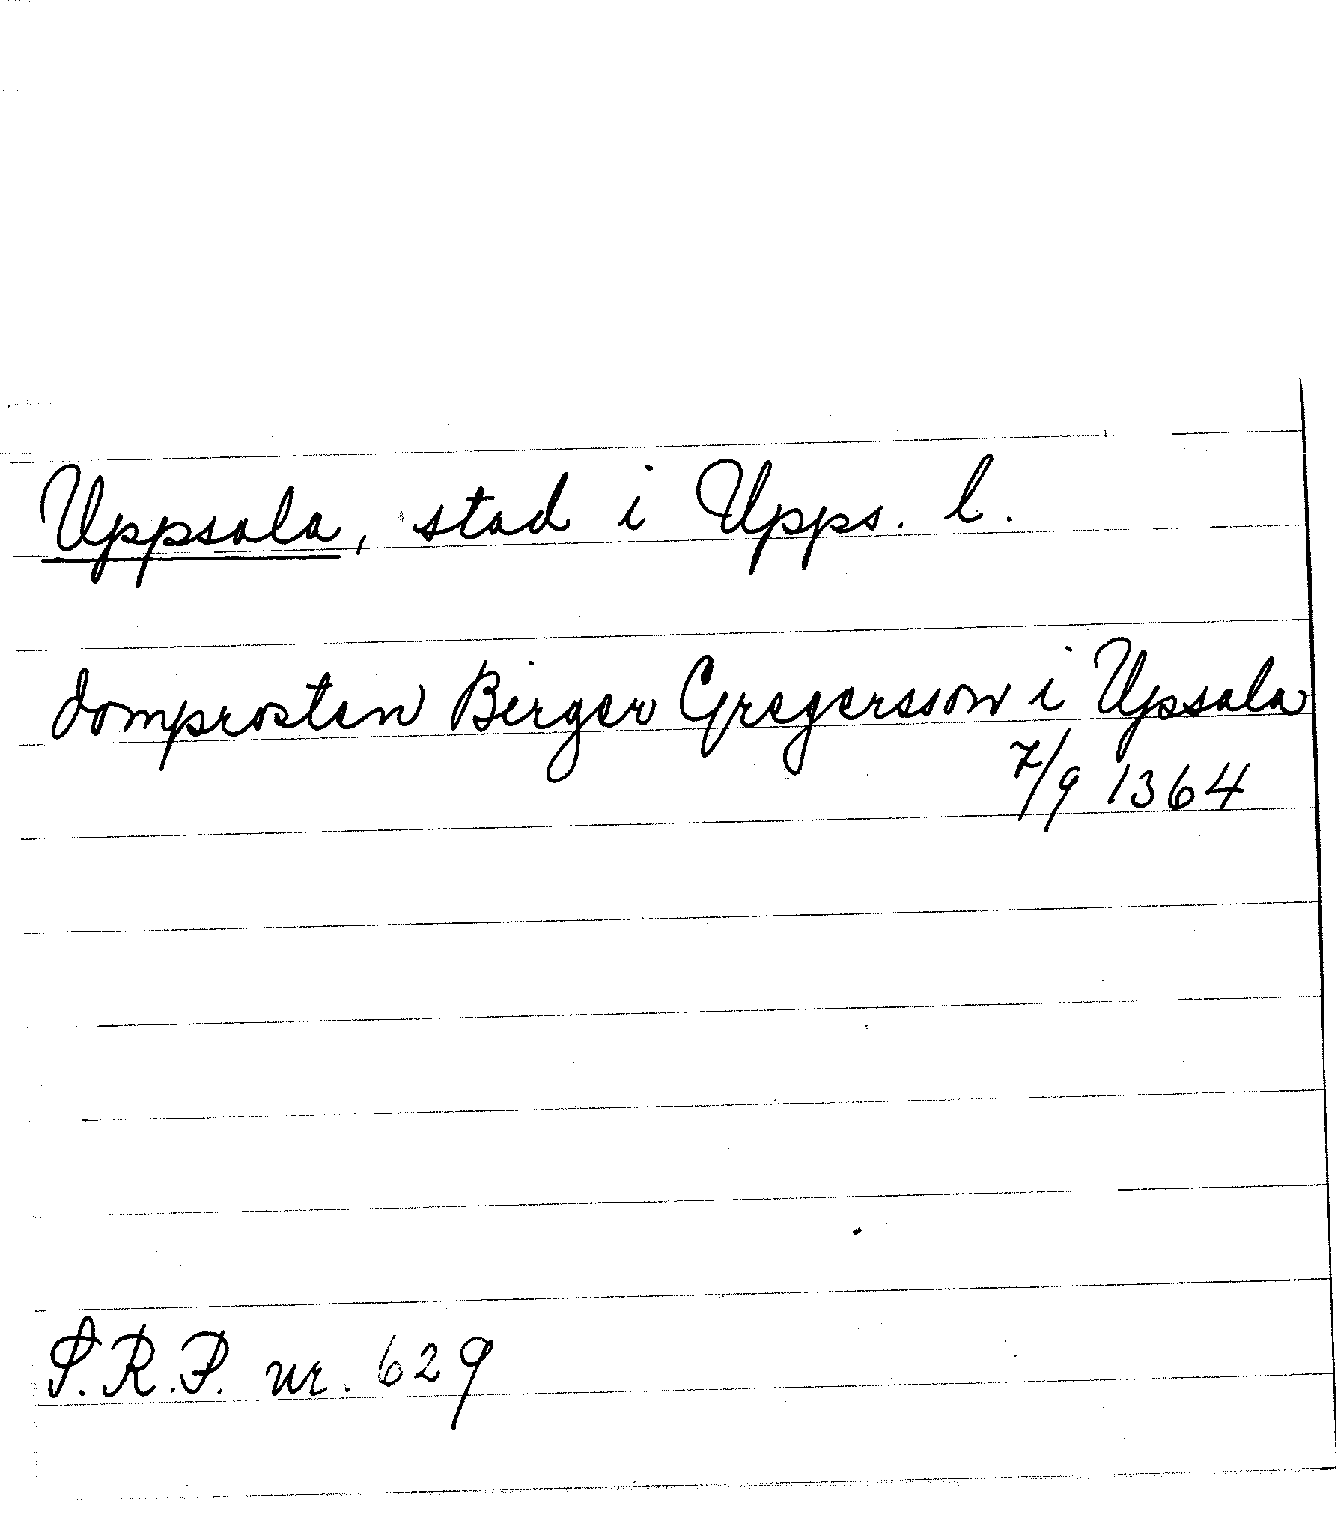 Uppsala, stad i Upps. l.
domprosten Birger Gregersson i Upsala
7/9 1364
S.R.P. nr. 629